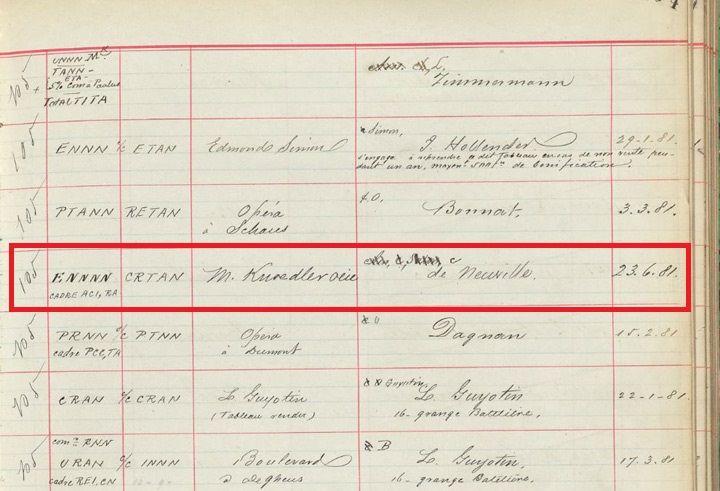 UNNN Me
TANN-
ETA-
5% Com à Paulus
Total TITA
Zimmermann
105 ENNN o/c ETAN Edmond Simon Simon, J. Hollender. 29-1.81.
s'engage à reprendre ce dit Tableau en cas de non vente pen-
dant un an, moyent de bonification.
105 PTANN RETAN Opéra & O, Bonnat. 3.3.81.
à Schaus
105 ENNNN CRTAN M. Knoedler c de Neuville. 23.6.81.
CADRE ACI, RA
105 PRNN o/c PTNN Opéra Dagnan 15.2.81.
cadre PCC, TA à Dumont
105 CRAN o/c CRAN L. Guyotin Guyotin, L. Guyotin 22-1-81.
(Tableau rendu) 16- grange Batelière.
com:n RNN
105 URAN o/c INNN Boulevard B L. Guyotin, 17.3.81.
cadre REI, CN 16- grange Batelière.